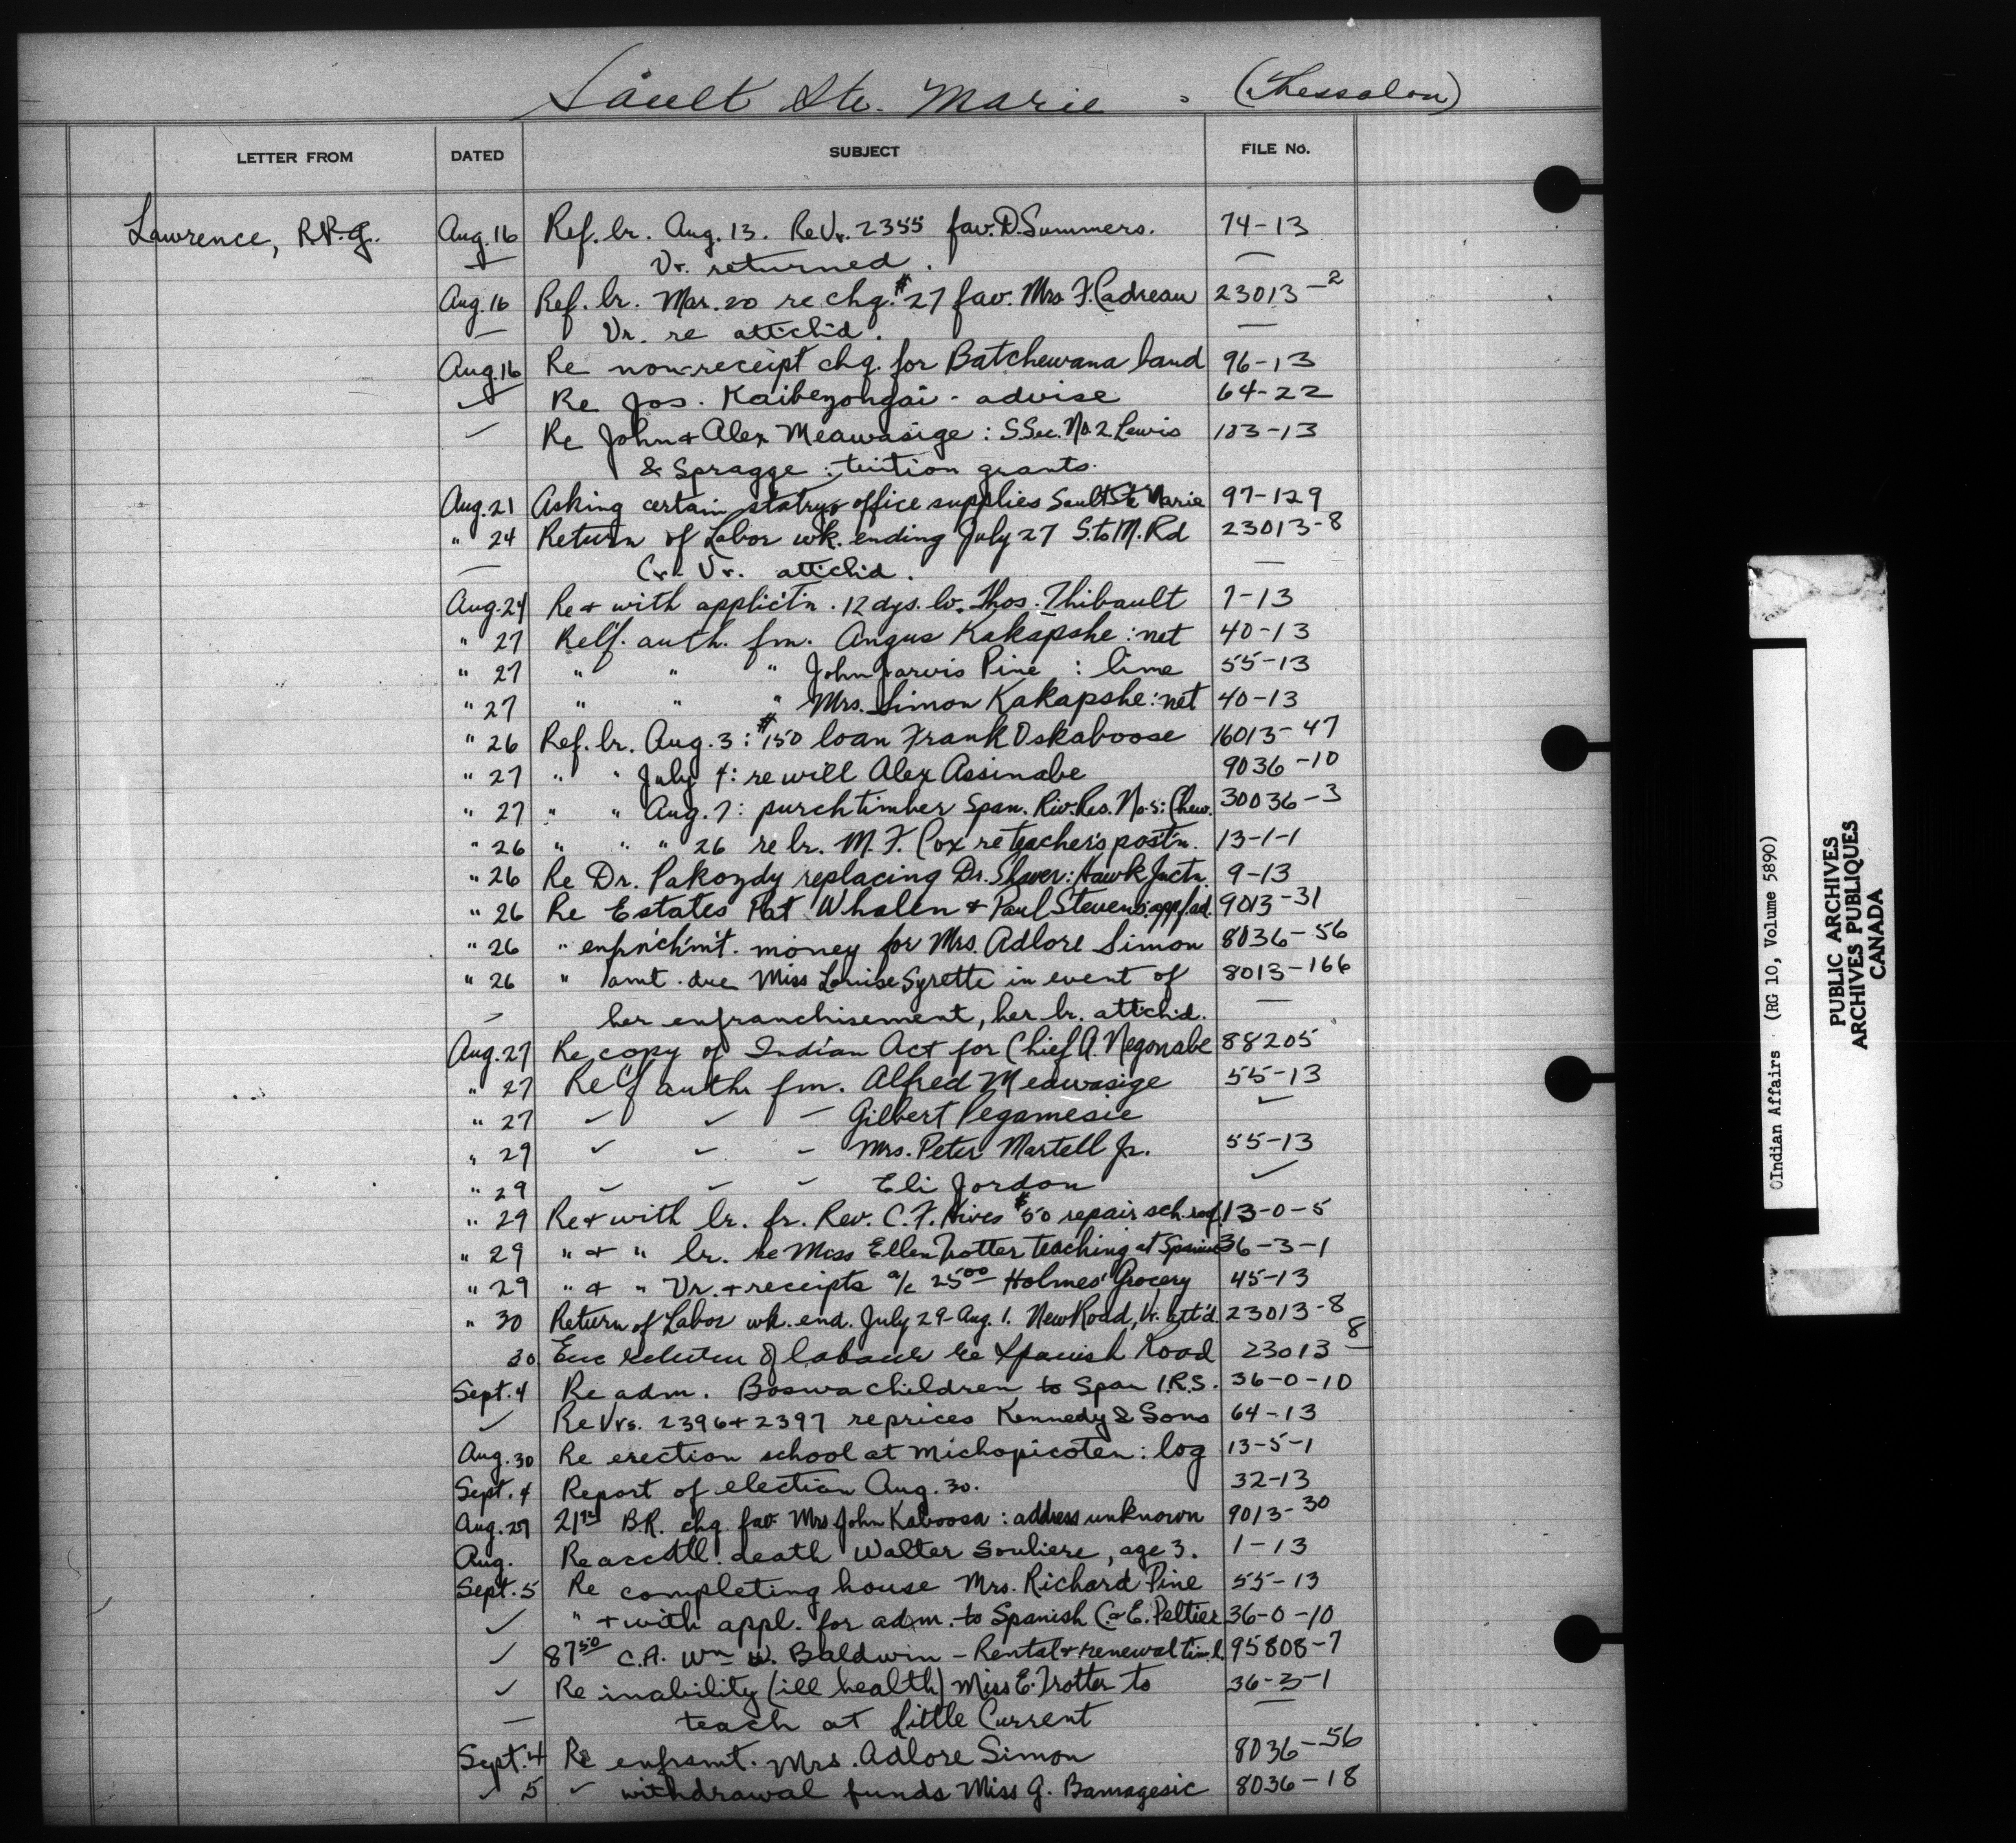 Sault Ste. Marie . (Thessalon)
LETTER FROM DATED SUBJECT FILE No.
Lawrence, R.P.G. Aug. 16 Ref. lr. Aug. 13. Re Vr. 2355 fav. D. Summers. 74-13
— Vr. returned. —
Aug. 16 Ref. lr. Mar. 20 re chq. #27 fav. Mrs F. Cadreau 23013-2
— Vr. re attchd. —
Aug. 16 Re non-receipt chq. for Batchewana band 96-13
✓ Re Jos. Kaibezongai - advise 64-22
✓ Re John + Alex Meawasige : S.Sec. No. 2. Lewis 103-13
& Spragge : tuition grants.
Aug. 21 Asking certain statry + office supplies Sault Ste Marie 97-129
" 24 Return of Labor wk. ending July 27 S.toM. Rd 23013-8
— Cr. Vr. attchd. —
Aug. 24 Re + with applic'tn. 12 dys. lv. Thos. Thibault 7-13
" 27 Relf. auth. fm. Angus Kakapshe : net 40-13
" 27 " " " John Jarvis Pine : lime 55-13
" 27 " " " Mrs. Simon Kakapshe : net 40-13
" 26 Ref. lr. Aug. 3 : #150 loan Frank Oskaboose 16013-47
" 27 " " July 4 : re will Alex Assinabe 9036-10
" 27 " " Aug. 7 : purch timber Span. Riv. Res. No. 5 : Chew. 30036-3
" 26 " " " 26 re lr. M. F. Cox re teacher's post'n. 13-1-1
" 26 Re Dr. Pakozdy replacing Dr. Shaver : Hawk Jnctn. 9-13
" 26 Re Estates Pat Whalen + Paul Stevens : app/ad. 9013-31
" 26 " enfrnchm't. money for Mrs. Adlore Simon 8036-56
" 26 " amt. due Miss Louise Syrette in event of 8013-166
— her enfranchisement, her lr. attchd. —
Aug. 27 Re copy of Indian Act for Chief A. Negonabe 88205
" 27 Relf auth fm. Alfred Meawasige 55-13
" 27 ✓ ✓ — Gilbert Pegamesie ✓
" 29 ✓ ✓ — Mrs. Peter Martell Jr. 55-13
" 29 ✓ ✓ — Eli Jordon ✓
" 29 Re + with lr. fr. Rev. C. F. Hives #50 repair sch. roof. 13-0-5
" 29 " + " lr. re Miss Ellen Trotter teaching at Spanish 36-3-1
" 29 " + " Vr. + receipts a/c 25⁰⁰ Holmes' Grocery 45-13
" 30 Return of Labor wk. end. July 29 - Aug. 1. New Road, Vr. att'd. 23013-8
30 Enc return of labour re Spanish Road 23013-8
Sept. 4 Re adm. Boswa children to Span I.R.S. 36-0-10
✓ Re Vrs. 2396 + 2397 re prices Kennedy & Sons 64-13
Aug. 30 Re erection school at Michopicoten : log 13-5-1
Sept. 4 Report of election Aug. 30. 32-13
Aug. 29 B.R. chq. fav. Mrs John Kaboosa : address unknown 9013-30
Aug. Re acc'tl. death Walter Souliere, age 3. 1-13
Sept. 5 Re completing house Mrs. Richard Pine 55-13
✓ " + with appl. for adm. to Spanish C. + E. Peltier 36-0-10
✓ 87⁵⁰ C.A. Wm W. Baldwin - Rental + renewal tim. l. 95808-7
✓ Re inability (ill health) Miss E. Trotter to 36-3-1
— teach at Little Current —
Sept. 4 Re enfrsmt. Mrs. Adlore Simon 8036-56
✓ 5 ✓ withdrawal funds Miss G. Bamagesic 8036-18
©Indian Affairs (RG 10, Volume 5890)
PUBLIC ARCHIVES
ARCHIVES PUBLIQUES
CANADA